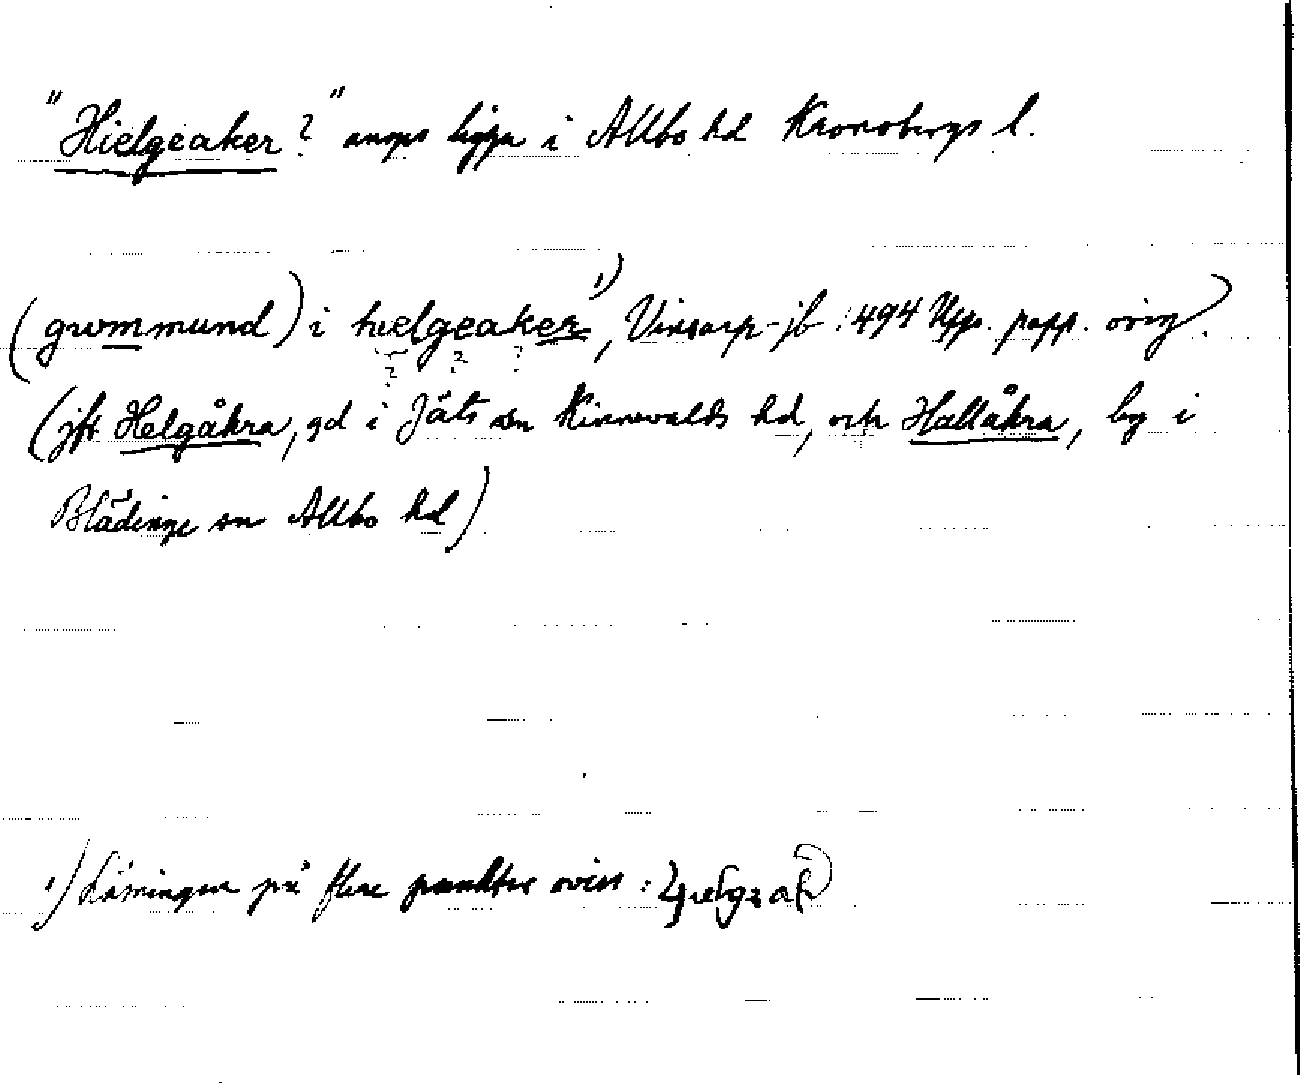 "Hielgeaker?" anges ligga i Allbo hd Kronobergs l.
(grwmmund) i hielgeaker ¹), Vinsarp-jb 1494 Upps. papp. orig.
(jfr Helgåkra, gd i Jäts sn Kinnevalds hd, och Hallåkra, by i
Blädinge sn Allbo hd)
1) Läsningen på flere punkter oviss: